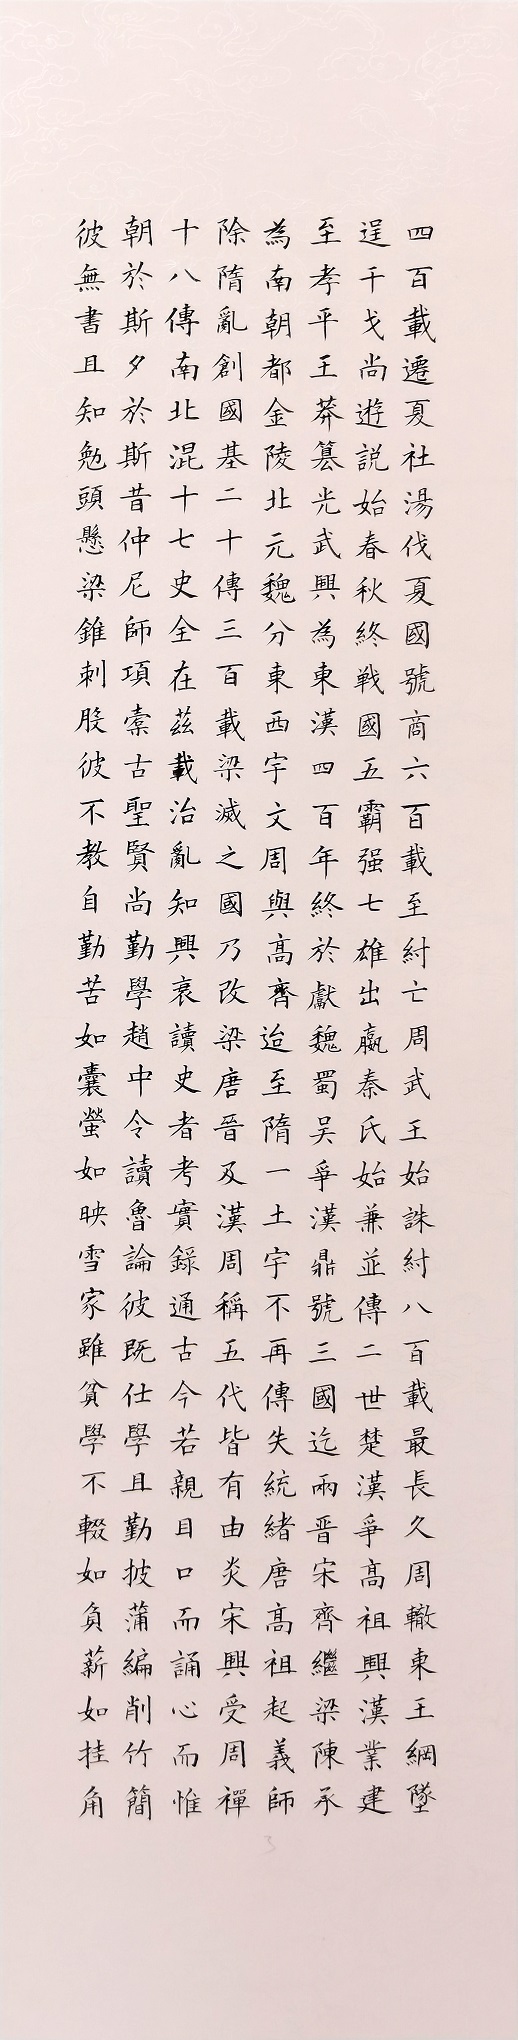 四百載遷夏社湯伐夏國號商六百載至紂亡周武王始誅紂八百載最長久周轍東王綱墜
逞干戈尚遊説始春秋終戰國五霸强七雄出嬴秦氏始兼並傳二世楚漢爭高祖興漢業建
至孝平王莽篡光武興為東漢四百年終於獻魏蜀吴爭漢鼎號三國迄兩晋宋齊繼梁陳承
為南朝都金陵北元魏分東西宇文周與高齊迨至隋一土宇不再傳失統緒唐高祖起義師
除隋亂創國基二十傳三百載梁滅之國乃改梁唐晉及漢周稱五代皆有由炎宋興受周禪
十八傳南北混十七史全在茲載治亂知興衰讀史者考實錄通古今若親目口而誦心而惟
朝於斯夕於斯昔仲尼師項橐古聖賢尚勤學趙中令讀魯論彼既仕學且勤披蒲編削竹簡
彼無書且知勉頭懸梁錐刺股彼不教自勤苦如囊螢如映雪家雖貧學不輟如負薪如挂角
3